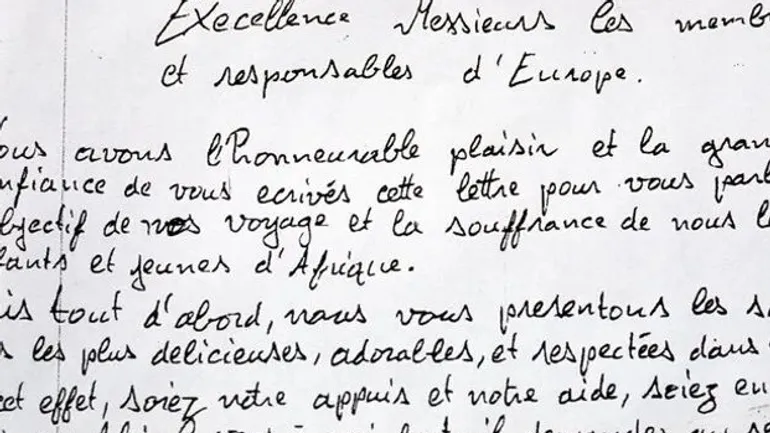 Execellence Messieurs les memb
et responsables d'Europe.
ous avons l'honneurable plaisir et la gran
nfiance de vous ecrivés cette lettre pour vous parl
bjectif de nos voyage et la souffrance de nous l
fants et jeunes d'Afrique.
is tout d'abord, nous vous presentons les s
s les plus delicieuses, adorables, et respectées dans
cet effet, soiez notre appuis et notre aide, soiez en